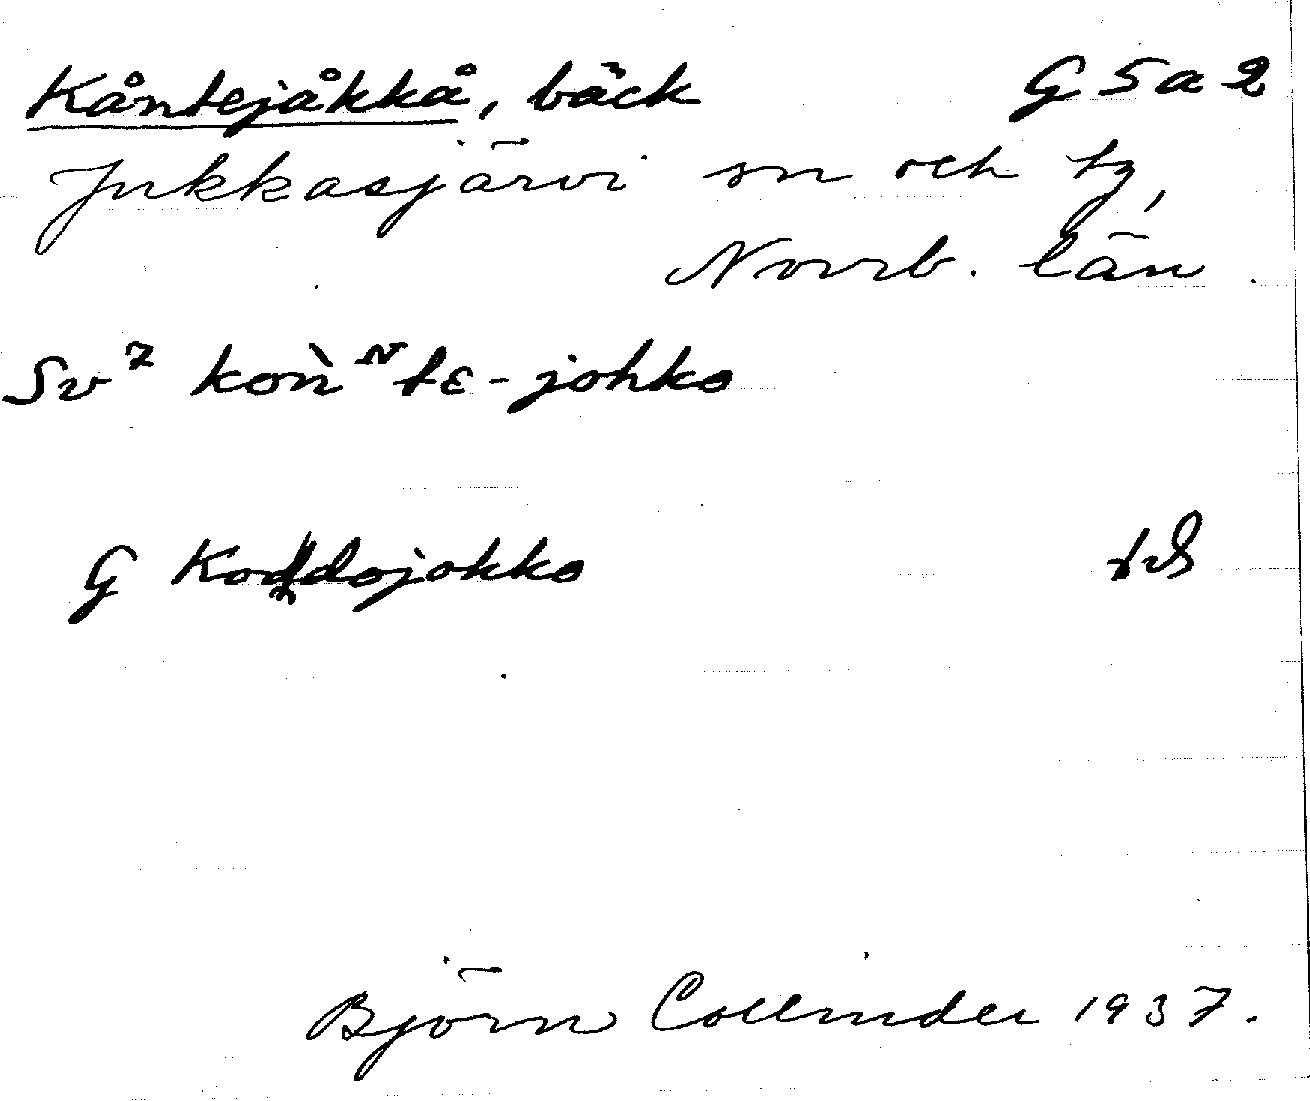 Kåntejåkkå, bäck G 5 a 2
Jukkasjärvi sn och tg,
Norrb. län.
Sv⁷ koǹᴺtɛ-johko
G Koddojokko
Björn Collinder 1937.